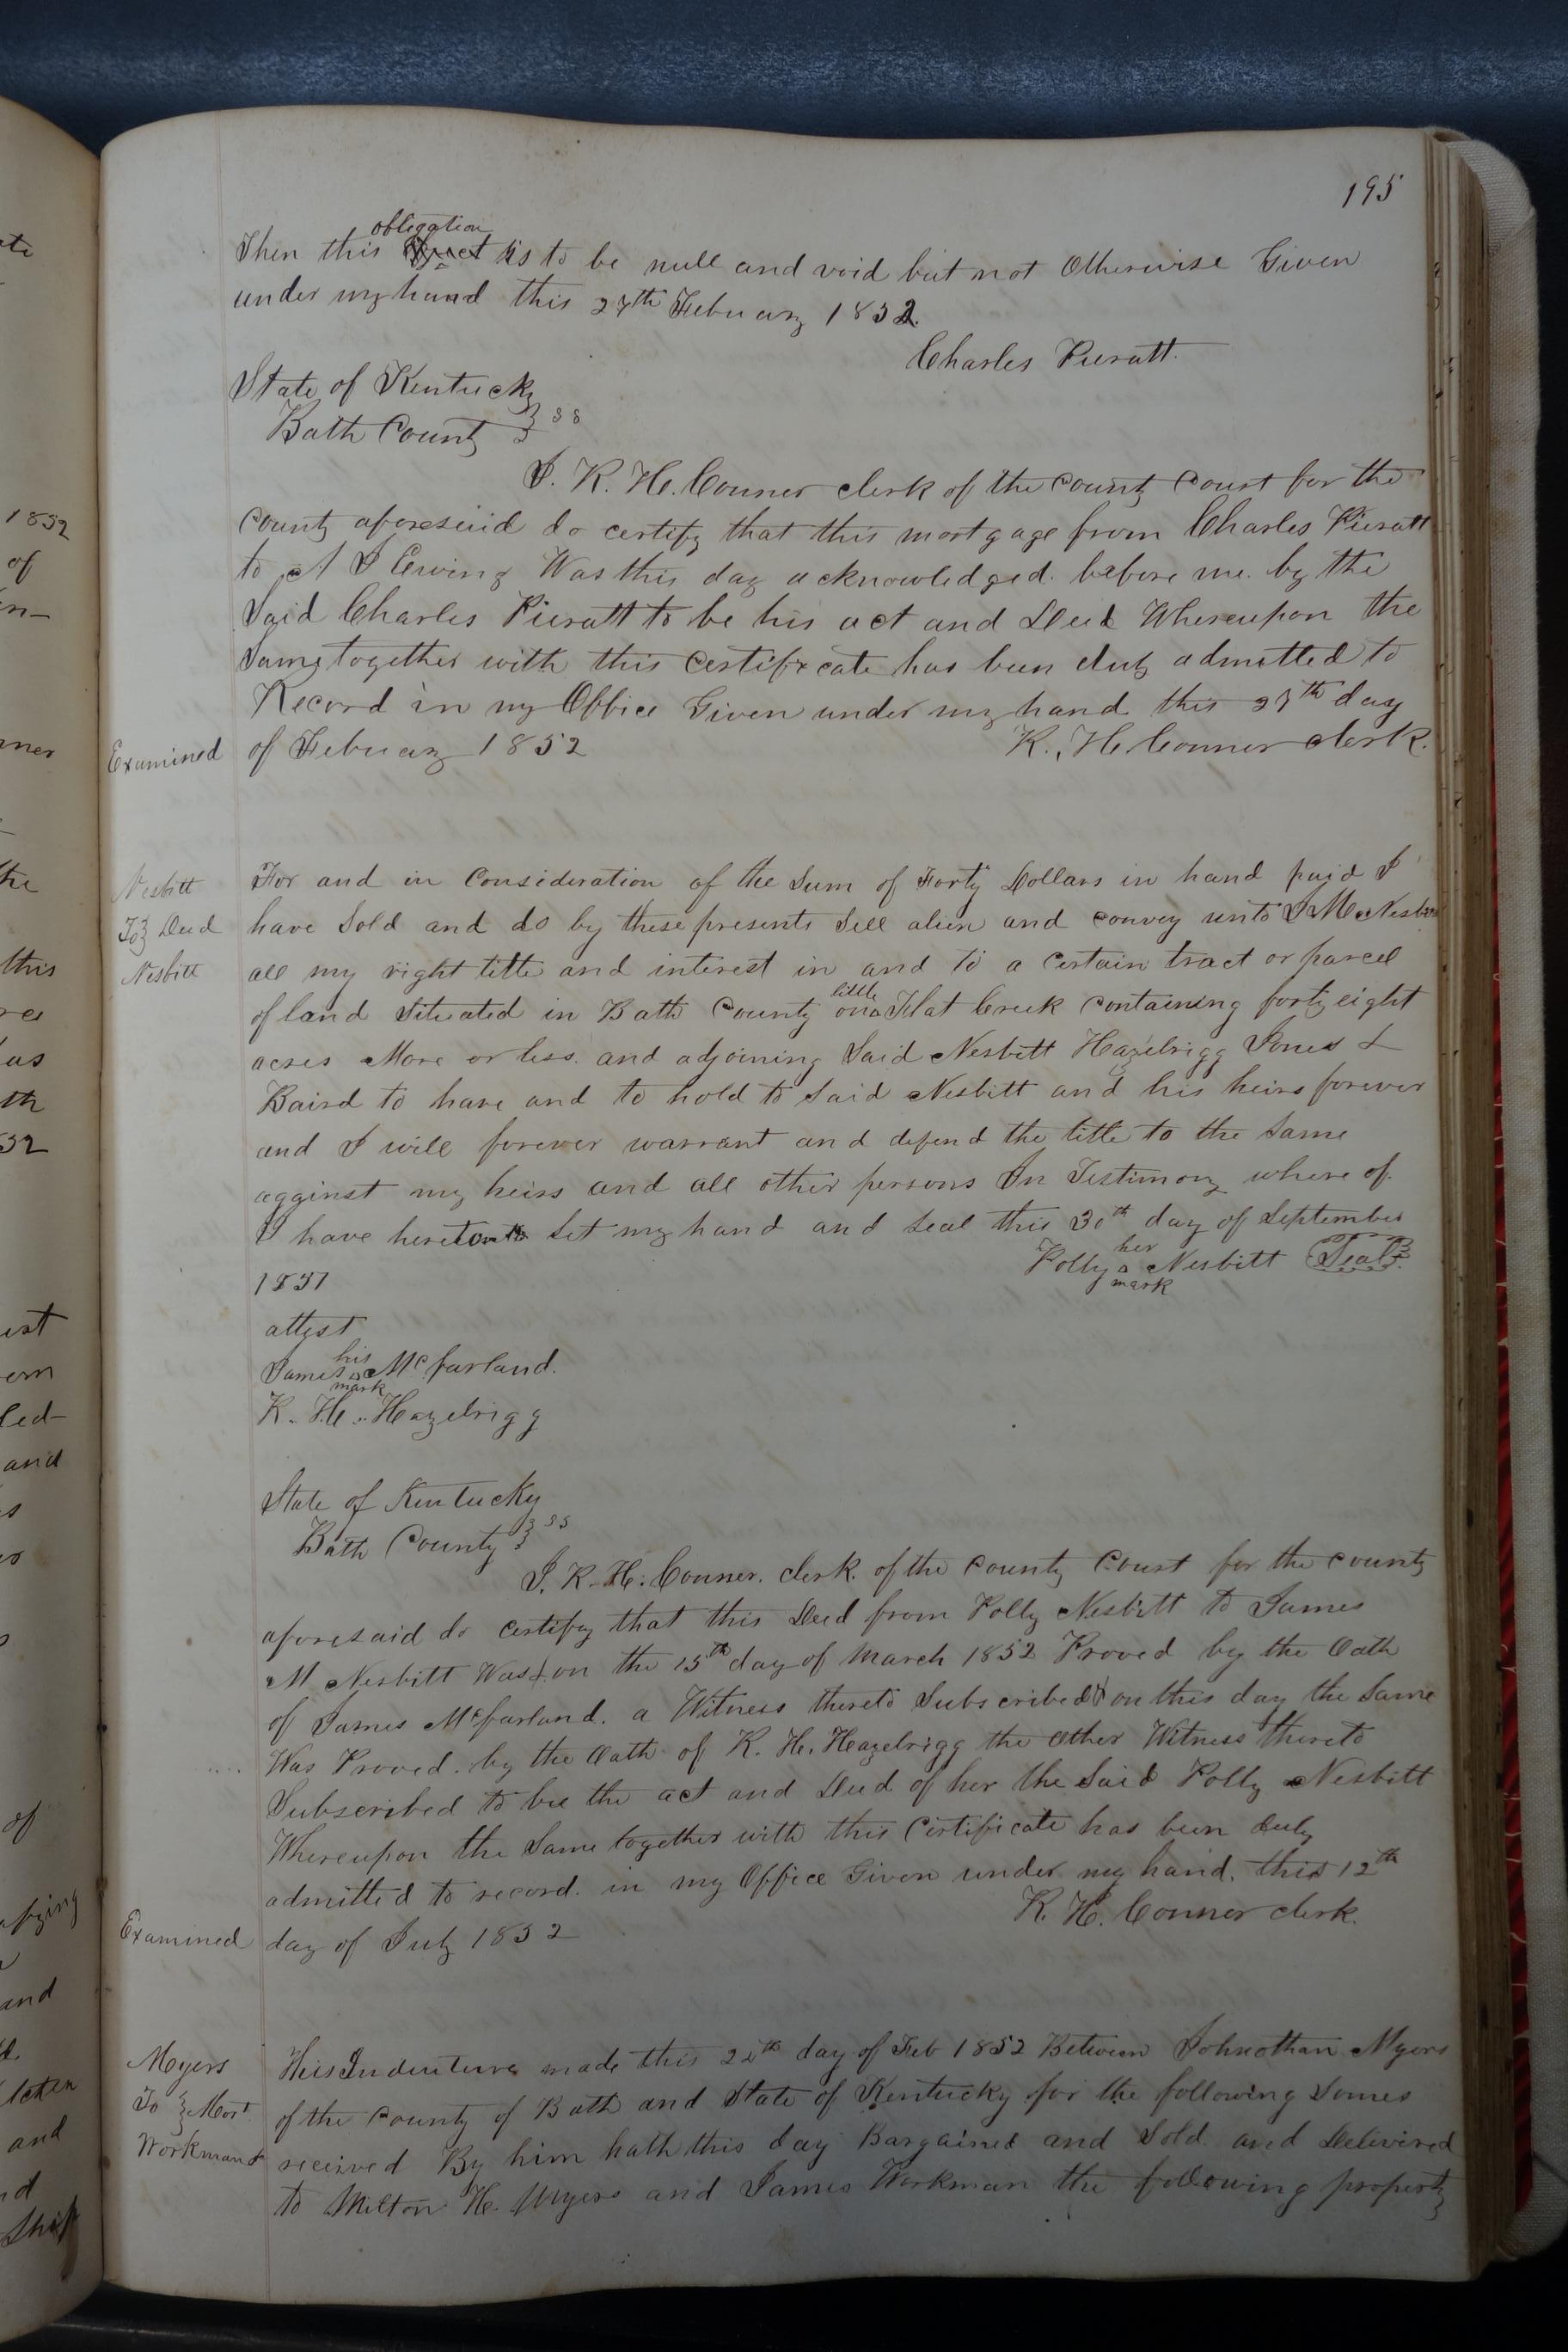 195
Then this obligation is to be null and void but not Otherwise Given
under my hand this 27th Febuary 1852.
Charles Pieratt.
State of Kentucky
Bath County } ss
I. K. H. Conner clerk of the county Court for the
county aforesaid do certify that this mortgage from Charles Pieratt
to A J Ewing Was this day acknowledged. before me. by the
Said Charles Pieratt to be his act and Deed Whereupon the
Same together with this certificate has been duly admitted to
Record in my Office Given under my hand this 27th day
Examined of Febuary 1852 K. H. Conner clerk.
Nesbitt For and in Consideration of the Sum of Forty Dollars in hand paid I
To } Deed have Sold and do by these presents Sell alien and convey unto J M Nesbitt
Nesbitt all my right title and interest in and to a Certain tract or parcel
of land Situated in Bath County on little Flat Creek containing forty eight
acres More or less. and adjoining Said Nesbitt Hazelrigg Jones &
Baird to have and to hold to Said Nesbitt and his heirs forever
and I will forever warrant and defend the title to the Same
against my heirs and all other persons In Testimony where of
I have hereto Set my hand and Seal this 30th day of September
1851 Polly her mark Nesbitt Seal
attest
James his mark McFarland.
K. H. Hazelrigg
State of Kentucky
Bath County } ss
I. K. H. Conner. clerk. of the County Court for the county
aforesaid do Certify that this Deed from Polly Nesbitt to James
M Nesbitt Was on the 15th day of March 1852 Proved by the Oath
of James McFarland. a Witness thereto Subscribed & on this day the Same
Was Proved. by the Oath of K. H. Hazelrigg the other Witness thereto
Subscribed to be the act and Deed of her the Said Polly Nesbitt
Whereupon the Same together with this Certificate has been Duly
admitted to record. in my Office Given under my hand. this 12th
Examined day of July 1852 K. H. Conner clerk.
Myers This Indenture made this 24th day of Feb 1852 Between Johnothan Myers
To } Mort of the County of Bath and State of Kentucky for the following Somes
Workman & received By him hath this day Bargained and Sold. and Delivired
to Milton H. Myers and James Workman the following property